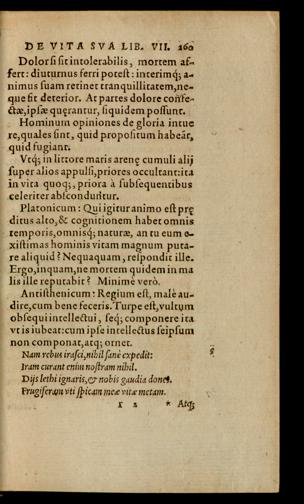 DE VITA SVA LIB. VII. 260
Dolor si sit intolerabilis, mortem af-
fert: diuturnus ferri potest: interimq; a-
nimus suam retinet tranquillitatem, ne-
que fit deterior. At partes dolore confe-
ctæ, ipsæ quęrantur, siquidem possunt.
Hominum opiniones de gloria intue
re, quales sint, quid propositum habeāt,
quid fugiant.
Vtq; in littore maris arenę cumuli alij
super alios appulsi, priores occultant: ita
in vita quoq;, priora à subsequentibus
celeriter absconduntur.
Platonicum: Qui igitur animo est prę
ditus alto, & cognitionem habet omnis
temporis, omnisq; naturæ, an tu eum e-
xistimas hominis vitam magnum puta-
re aliquid? Nequaquam, respondit ille.
Ergo, inquam, ne mortem quidem in ma
lis ille reputabit? Minimè verò.
Antisthenicum: Regium est, malè au-
dire, cum bene feceris. Turpe est, vultum
obsequi intellectui, seq; componere ita
vt is iubeat: cum ipse intellectus seipsum
non componat, atq; ornet.
Nam rebus irasci, nihil sanè expedit:
Iram curant enim nostram nihil.
Dijs lethi ignaris, & nobis gaudia dones.
Frugiferam vti spicam meæ vitæ metam.
* Atq;